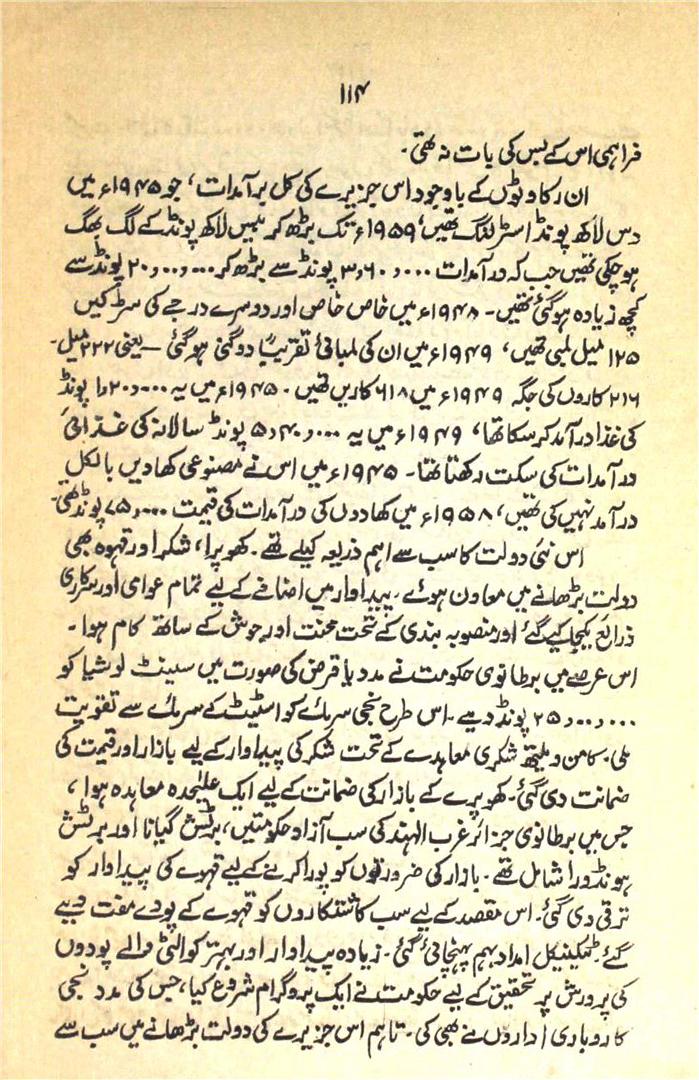 ۱۱۴
فراہمی اس کے بس کی بات نہ تھی۔
ان رکاوٹوں کے باوجود اس جزیرے کی کل برآمدات، جو ۱۹۴۵ء میں
دس لاکھ پونڈ اسٹرلنگ تھیں، ۱۹۵۹ء تک بڑھ کر بیس لاکھ پونڈ کے لگ بھگ
ہو چکی تھیں جب کہ درآمدات ۳٫۶۰٫۰۰۰ پونڈ سے بڑھ کر ۲۰٫۰۰٫۰۰۰ پونڈ سے
کچھ زیادہ ہو گئی تھیں۔ ۱۹۴۸ء میں خاص خاص اور دوسرے درجے کی سڑکیں
۱۲۵ میل لمبی تھیں، ۱۹۴۹ء میں ان کی لمبائی تقریباً دوگنی ہو گئی – یعنی ۲۲۲ میل۔
۲۱۶ کاروں کی جگہ ۱۹۴۹ء میں ۶۱۸ کاریں تھیں۔ ۱۹۴۵ء میں یہ ۱٫۲۰٫۰۰۰ پونڈ
کی غذا درآمد کر سکا تھا، ۱۹۴۹ء میں یہ ۵٫۴۰٫۰۰۰ پونڈ سالانہ کی غذائی
درآمدات کی سکت رکھتا تھا۔ ۱۹۴۵ء میں اس نے مصنوعی کھادیں بالکل
درآمد نہیں کی تھیں، ۱۹۵۸ء میں کھادوں کی درآمدات کی قیمت ۷۵٫۰۰۰ پونڈ تھی۔
اس نئی دولت کا سب سے اہم ذریعہ کیلے تھے۔ کھوپرا، شکر اور قہوہ بھی
دولت بڑھانے میں معاون ہوئے۔ پیداوار میں اضافے کے لیے تمام عوامی اور سرکاری
ذرائع یکجا کیے گئے اور منصوبہ بندی کے تحت محنت اور جوش کے ساتھ کام ہوا۔
اس عرصے میں برطانوی حکومت نے مدد یا قرض کی صورت میں سینٹ لوشیا کو
۲۵٫۰۰٫۰۰۰ پونڈ دیے۔ اس طرح نجی سرمائے کو اسٹیٹ کے سرمائے سے تقویت
ملی۔ کامن ویلتھ شکری معاہدے کے تحت شکر کی پیداوار کے لیے بازار اور قیمت کی
ضمانت دی گئی۔ کھوپرے کے بازار کی ضمانت کے لیے ایک علیٰحدہ معاہدہ ہوا،
جس میں برطانوی جزائر غرب الہند کی سب آزاد حکومتیں، برٹش گیانا اور برٹش
ہونڈورا شامل تھے۔ بازار کی ضرورتوں کو پورا کرنے کے لیے قہوے کی پیداوار کو
ترقی دی گئی۔ اس مقصد کے لیے سب کاشتکاروں کو قہوے کے پودے مفت دیے
گئے۔ ٹیکنیکل امداد بہم پہنچائی گئی۔ زیادہ پیداوار اور بہتر کوالٹی والے پودوں
کی پرورش پر تحقیق کے لیے حکومت نے ایک پروگرام شروع کیا، جس کی مدد نجی
کاروباری اداروں نے بھی کی۔ تاہم اس جزیرے کی دولت بڑھانے میں سب سے